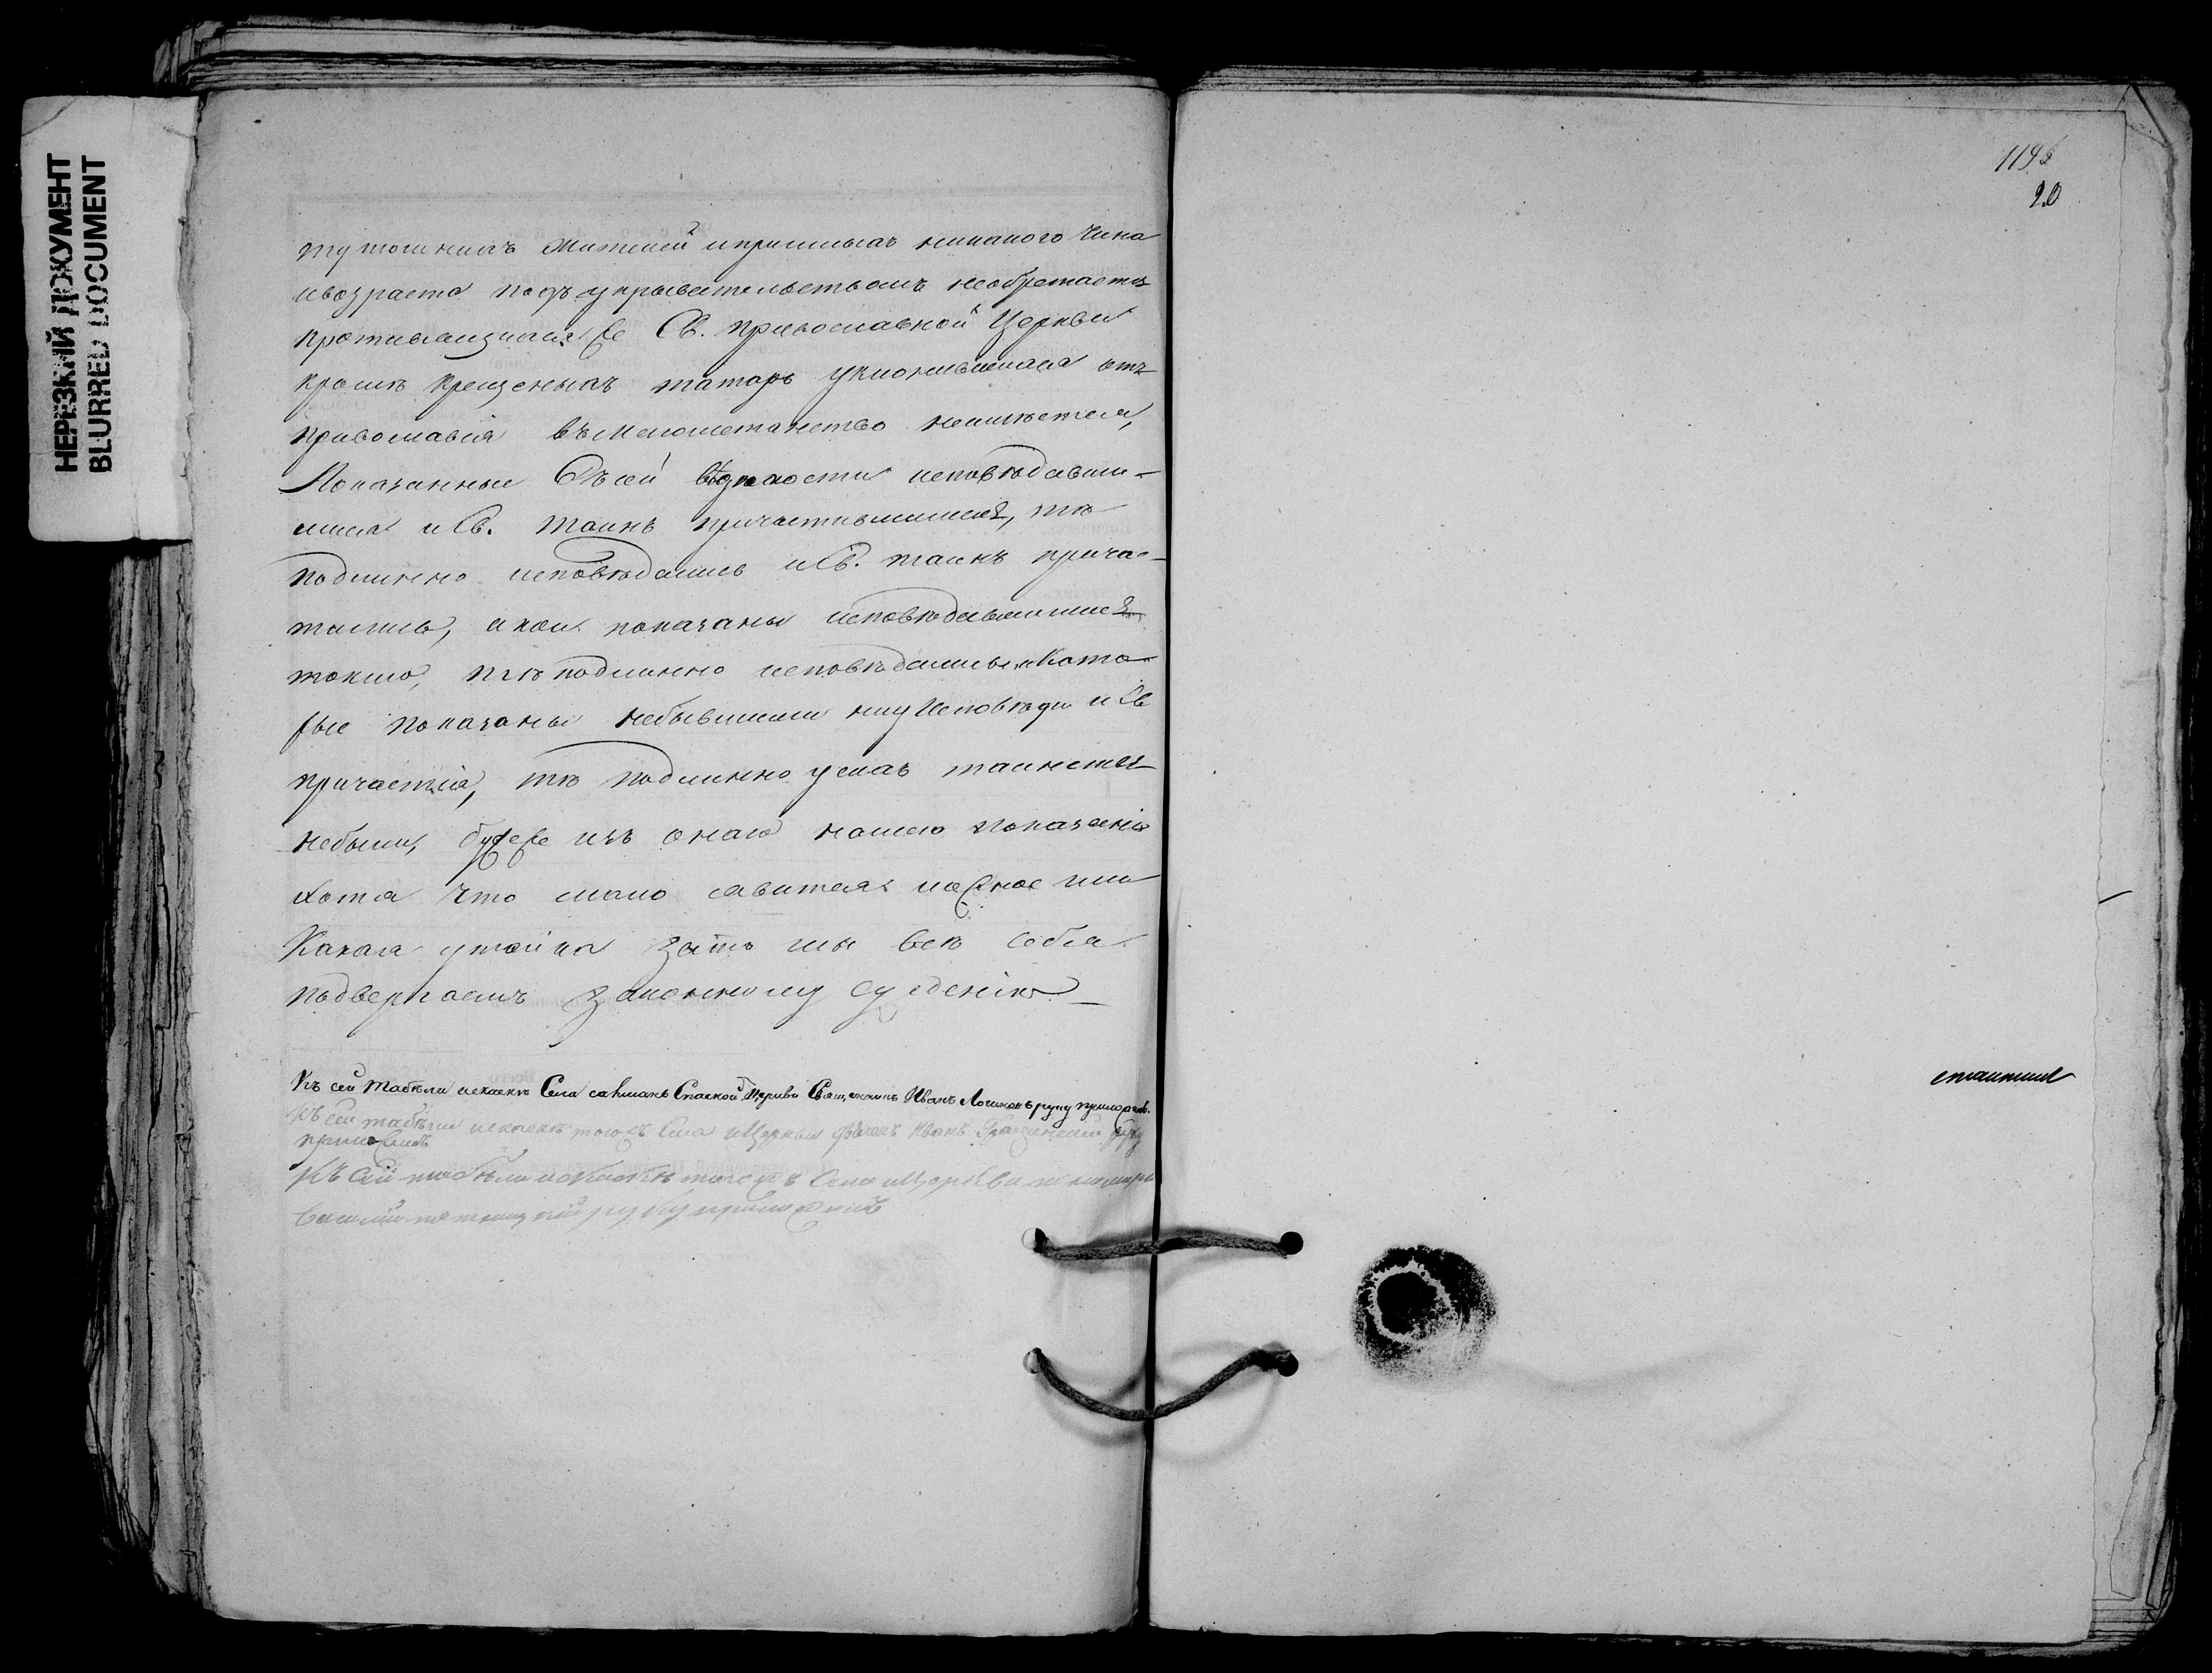 НЕРЕЗКИЙ ДОКУМЕНТ
BLURRED DOCUMENT
1195
20
тутошнихъ жителей и пришлыхъ никакого чина
и возраста подъ укрывательствомъ необретается
противящихся же Св. Православной Церкви
кромѣ крещеныхъ татаръ уклонившихся отъ
православія въ Магометанство неимѣется,
Показанные Въ сей вѣдомости исповѣдавши-
мися и Св. Таинъ причастившимися, тѣ
подлинно исповѣдались и Св. таинъ прича-
тились, а кои показаны исповѣдавшимися
токмо, тѣ подлинно исповѣдались, и Кото-
рые показаны небывшими ни у Исповѣди и Св
причастія, тѣ подлинно у сихъ таинствъ
небыли, буде же изъ онаго нашего показанія
хотя что мало явится ложное или
Какая утайка за то мы всѣ себя
подвергаемъ законному сужденію
Къ сей Табѣли и скаскѣ Села Спаской Церкви Священникъ Иванъ Логиновъ руку приложилъ.
Къ сей табѣли и скаскѣ тогожъ Села и Церкви Дьяконъ Иванъ руку
приложилъ
Къ сей табѣли и скаскѣ тогожъ Села и Церкви пономарь
Василій руку приложилъ